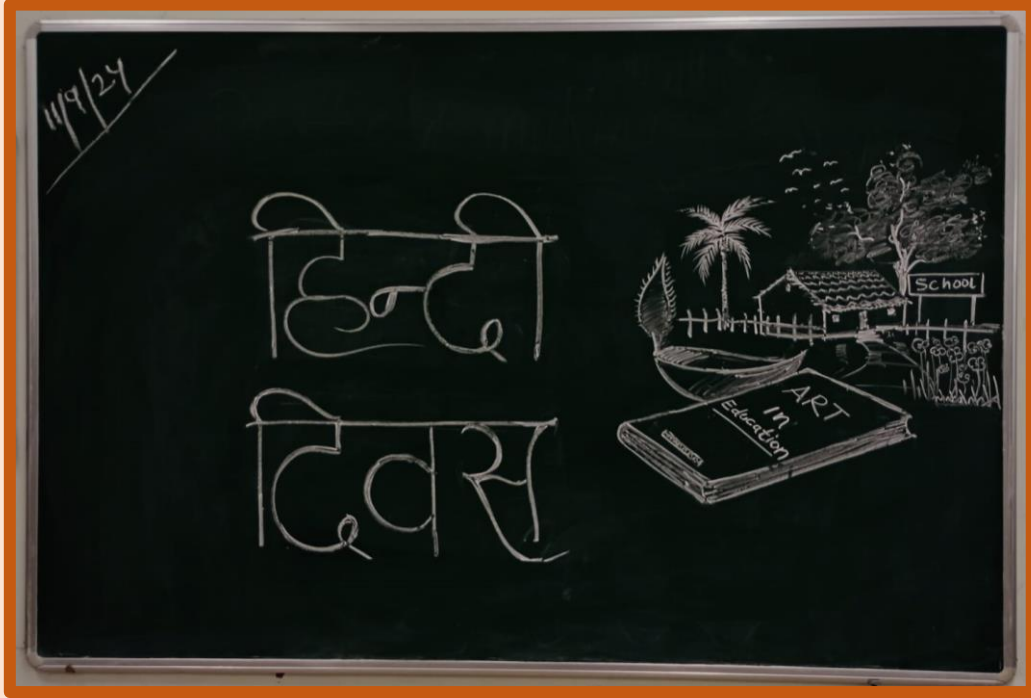 11/9/24
हिन्दी
दिवस
School
ART
in
Education